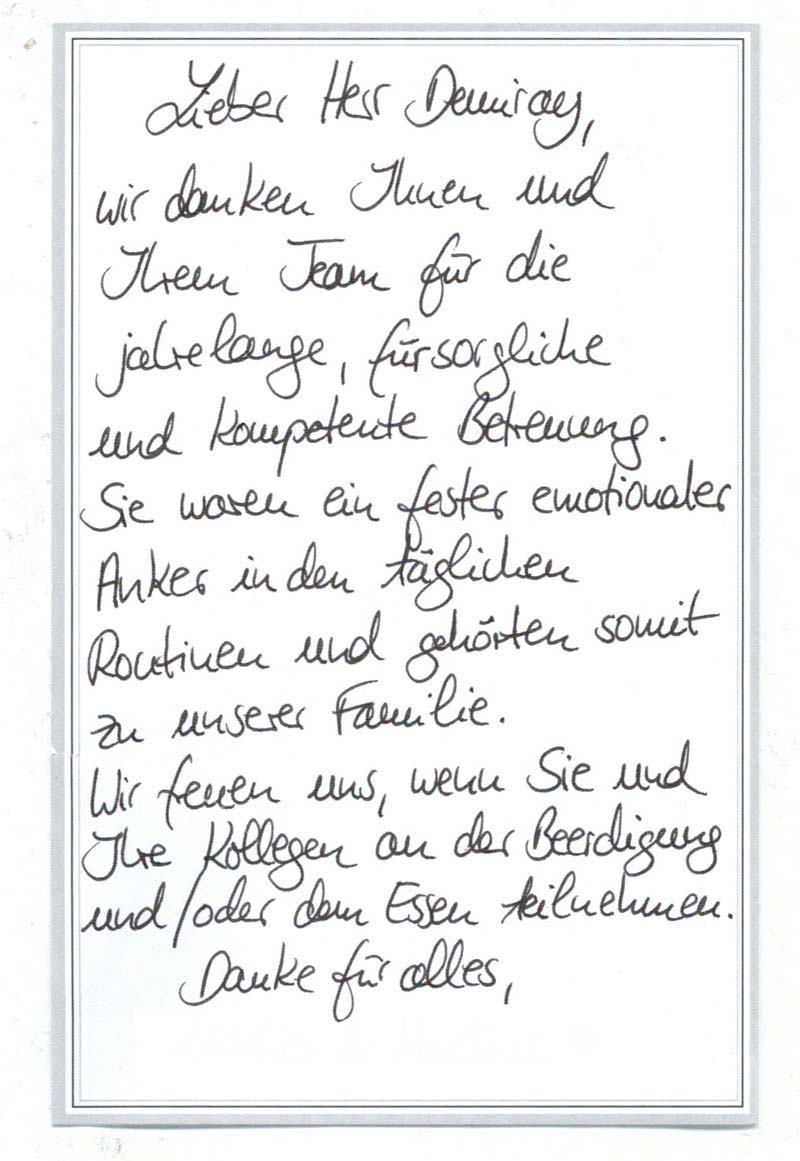 Lieber Herr Demiray,
wir danken Ihnen und
Ihrem Team für die
jahrelange, fürsorgliche
und kompetente Betreuung.
Sie waren ein fester emotionaler
Anker in den täglichen
Routinen und gehörten somit
zu unserer Familie.
Wir freuen uns, wenn Sie und
Ihre Kollegen an der Beerdigung
und/oder dem Essen teilnehmen.
Danke für alles,